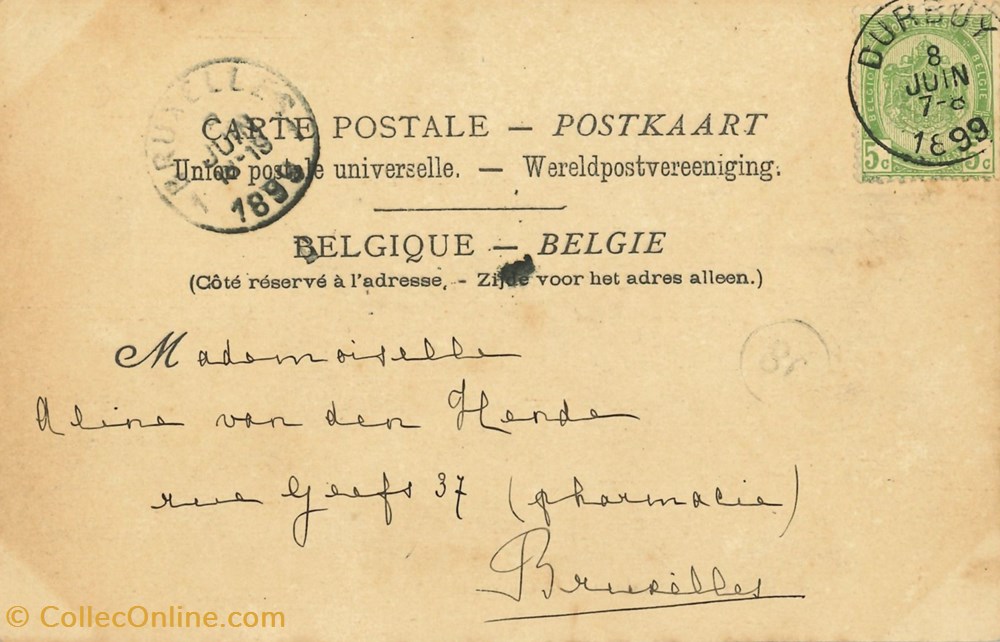 DURBUY
8
JUIN
7-8
1899
BELGIQUE BELGIE
5c 5c
BRUXELLES 1
JUIN
1899
CARTE POSTALE — POSTKAART
Union postale universelle. — Wereldpostvereeniging.
BELGIQUE — BELGIE
(Côté réservé à l'adresse. - Zijde voor het adres alleen.)
Mademoiselle
Aline van den Hende
rue Geefs 37 (pharmacie)
Bruxelles
© CollecOnline.com